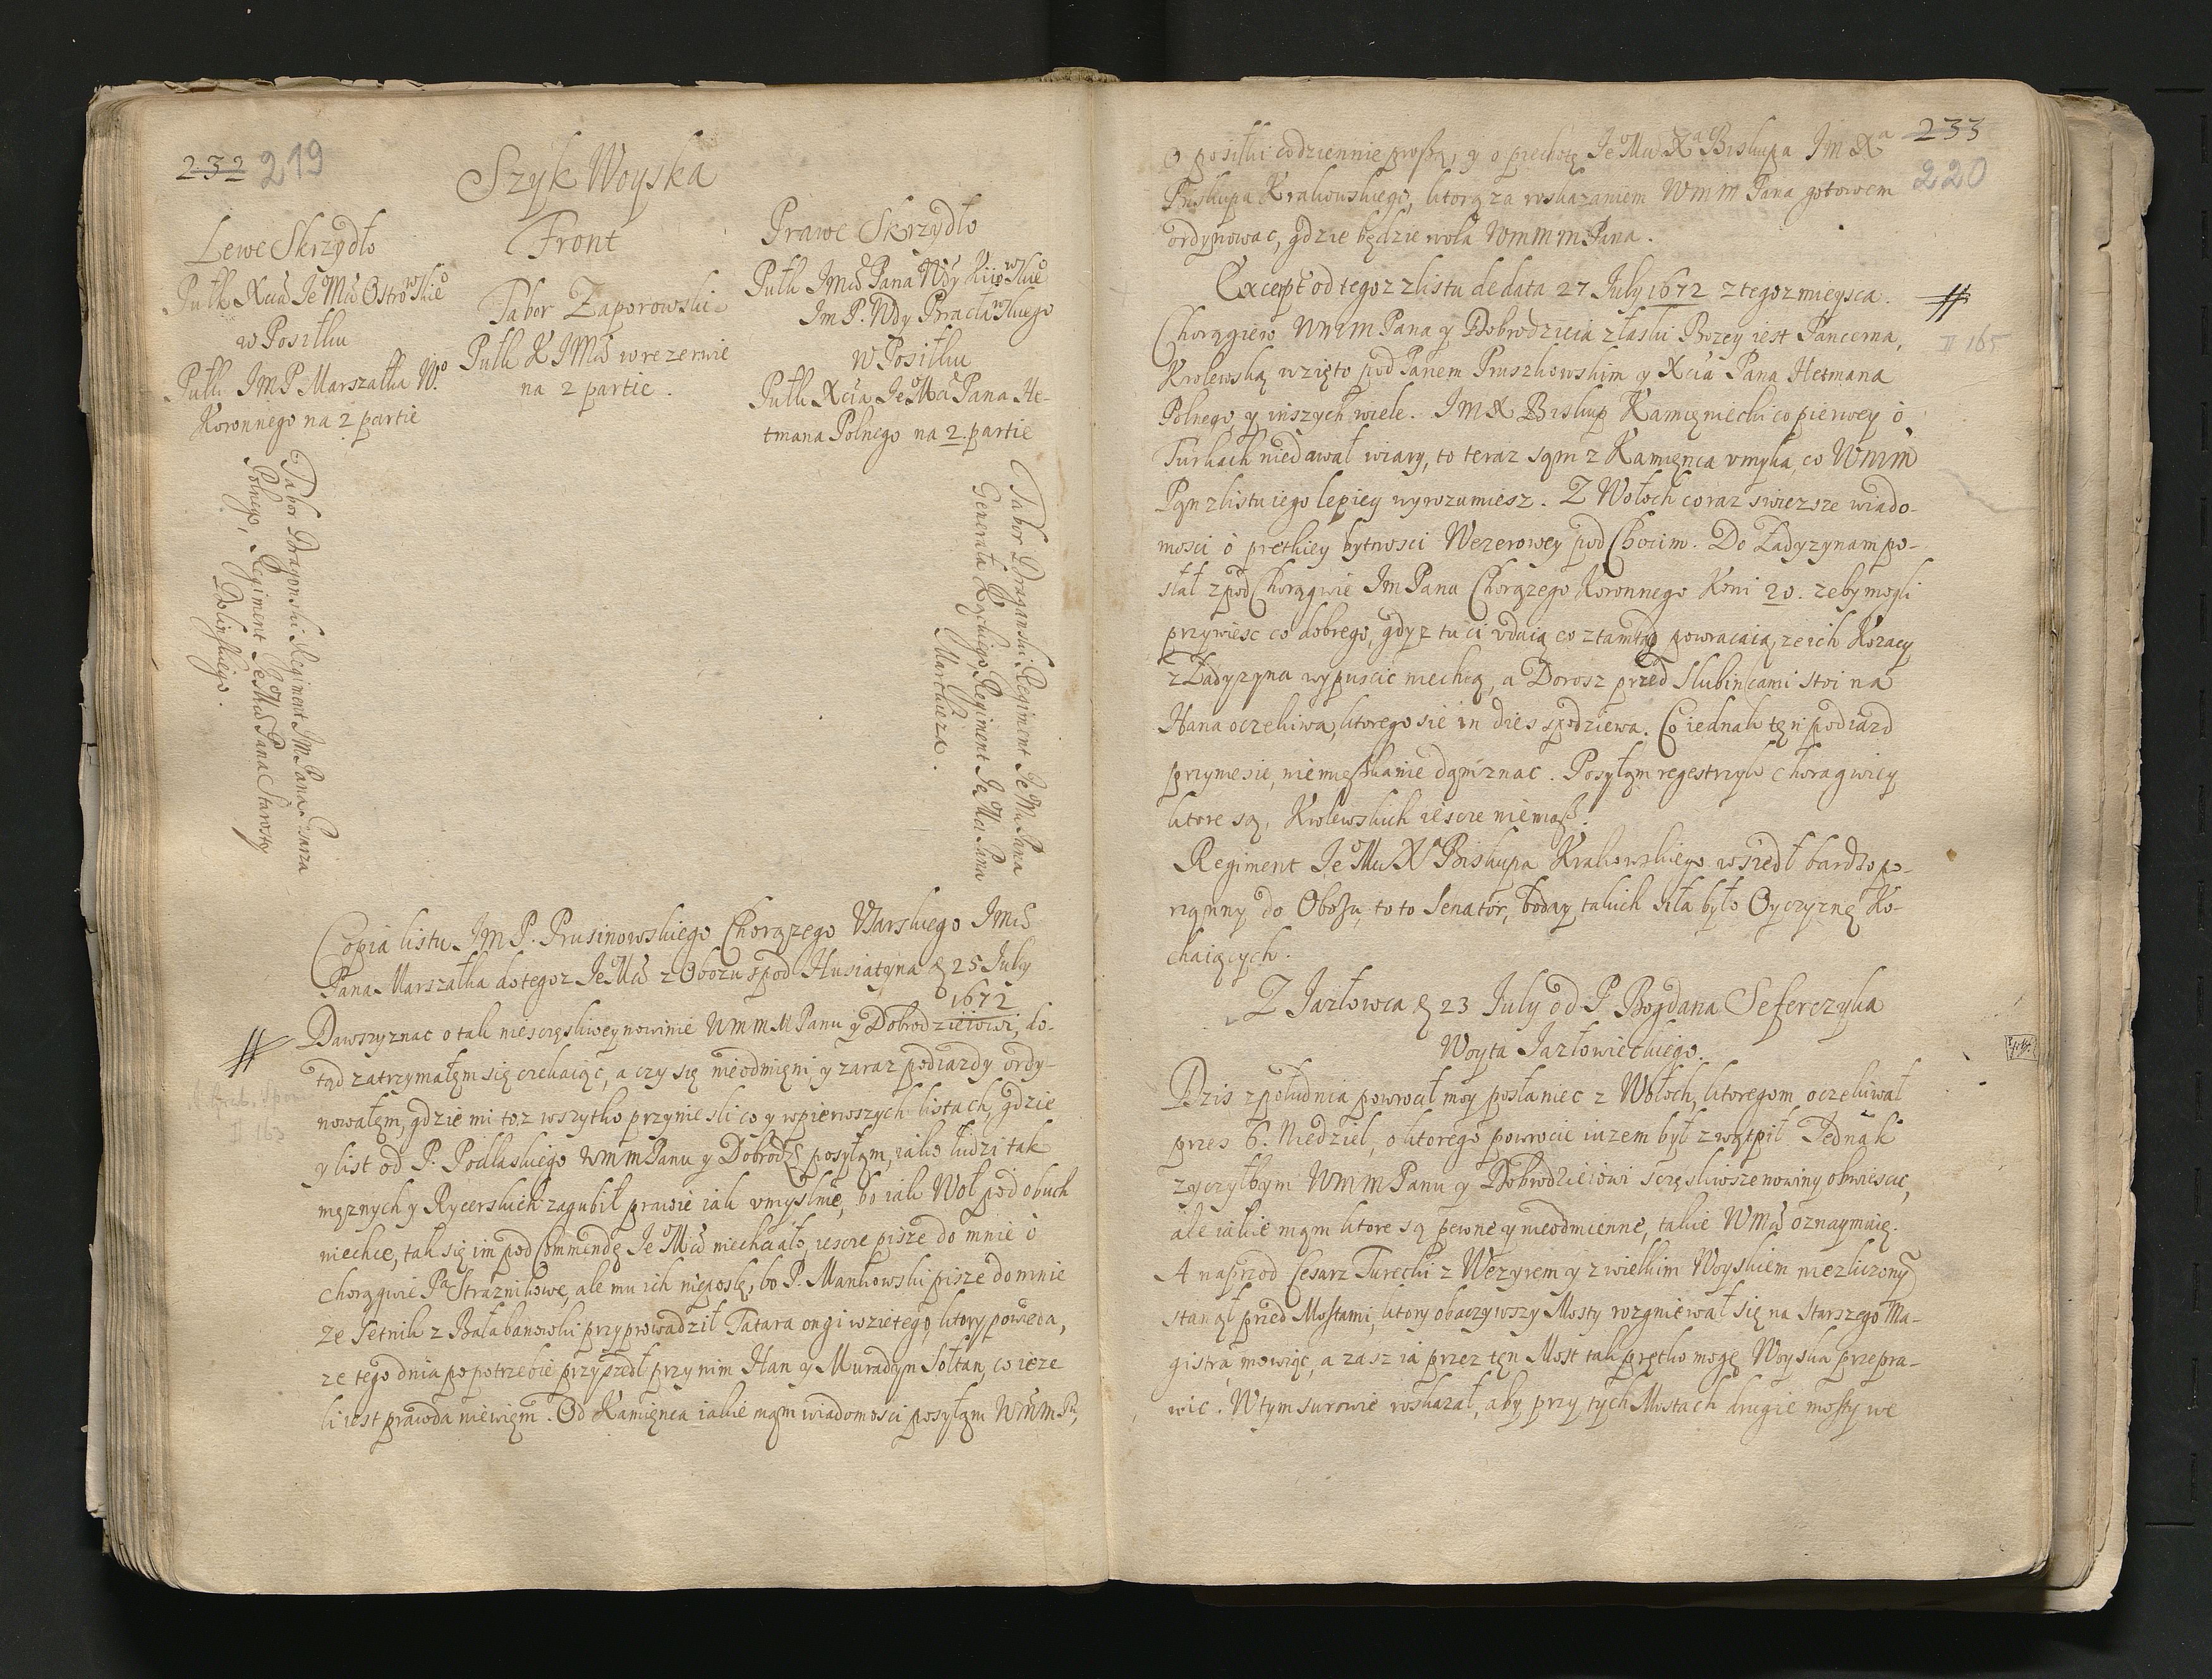 232 219
Szyk Woyska
Lewe Skrzydło
Pułk Xcia JeoMci Ostrowskieo
w Posiłku
Pułk JmP Marszałka Wo
Koronnego na 2 partie
Front
Tabor Zaporowski
Pułk KJMci w rezerwie
na 2 partie.
Prawe Skrzydło
Pułk Jmci Pana Wdy Kiiowskieo
Jm P. Wdy Bracławskiego
w Posiłku
Pułk Xcia JeoMci Pana He-
tmana Polnego na 2. partie
Tabor Dragonski Regiment JmPana Pisarza
Polnego, Regiment JeoMci Pana Starosty
Dolinskiego.
Tabor Draganski: Regiment JeoMci Pana
Generała Kąckiego, Regiment JeoMci Pana
Copia listu Jm P. Prusinowskiego Chorązego Vsarskiego Jmci
Pana Marszałka do tegoz JeoMci z Obozu zpod Husiatyna d 25 July
1672
Dawszy znac o tak niesczęsliwey nowinie WmmMPanu y Dobrodzieiowi, do-
tąd zatrzymałęm się czekaiąc, a czy się nieodmięni, y zaraz podiazdy ordy-
nowałęm, gdzie mi toz wszytko przyniesli co y w pierwszych listach, gdzie
y list od P. Podlaskiego WmmPanu y Dobrodz posyłąm, iako ludzi tak
męznych y Rycerskich zagubił prawie iak vmyslnie, bo iak Woł pod obuch
niechce, tak się im pod Commendę JeoMci niechciało, iescze pisze do mnie o
chorągwie Pa Straznikowe, ale mu ich nieposlę, bo P. Mankowski pisze do mnie
ze Setnik z Bałabanowki przyprowadził Tatara ongi wziętego, ktory powieda,
ze tego dnia po potrzebie przyszedł przy nim Han y Muradyn Sołtan, co iezę
li iest prawda niewięm. Od Kamięnca iakie mąm wiadomosci posyłąm WmmPu,
233
220
O posiłki codziennie proszą, y o piechotę JeoMci Xa Biskupa Jm Xa
Biskupa Krakowskiego, ktorą za roskazaniem WmmPana gotowem
ordynowac, gdzie będzie wola WmmmPana.
Excerpt od tegoz z listu de data 27 July 1672 z tegoz mieysca.
II 165
Chorągiew WmmPana y Dobrodzieia z łaski Bozey iest Pancerna,
Krolewską wzięto pod Panem Pruszkowskim y Xcia Pana Hetmana
Polnego, y inszych wiele. JmX Biskup Kamięniecki co pierwey o
Turkach niedawał wiary, to teraz sąm z Kamięnca vmyka, co Wmm
Pan z listu iego lepiey wyrozumiesz. Z Wołoch coraz swiezsze wiado-
mosci o prętkiey bytnosci Wezerowey pod Chocim. Do Ładyzynam po-
słał zpod Chorągwie JmPana Chorązego Koronnego Koni 20. zeby mogli
przywiesc co dobrego, gdyz tu ci vdaią co ztamtąd powracaią, ze ich Kozacy
z Ładyzyna wypuscic niechcą, a Dorosz przed Slubincami stoi na
Hana oczekiwa, ktorego sie in dies spodziewa. Co iednak tęn podiazd
przyniesie, niemęszkanie dąm znac. Posyłąm regestrzyk chorągwiey
ktore są, Krolewskich iescze niemasz.
Regiment JeoMci Xa Biskupa Krakowskiego wszedł bardzo po-
rząnny do Obozu, toto Senator, boday takich siła było Oyczyznę Ko-
chaiących.
Z Jazłowca d 23 July od P. Bogdana Seferczyka
Woyta Jazłowieckiego.
Dzis z południa powrocił moy posłaniec z Wołoch, ktoregom oczekiwał
przes 6. Niedziel, o ktorego powrocie iuzem był zwątpił. Jednak
zyczyłbym WmmPanu y Dobrodzieiowi sczęsliwsze nowiny obwiescic,
ale iakie mąm ktore są pewne y nieodmienne, takie Wmci oznaymuię.
A naprzod Cesarz Turecki z Wezyrem y z wielkim Woyskiem niezliczony
stanął przed Mostami, ktory obaczywszy Mosty rozgniewał się na Starszego Ma-
gistra, mowiąc, a zasz ia przez tęn Most tak prętko mogę Woyska przepra-
wic. W tym surowie roskazał, aby przy tych Mostach drugie mosty we